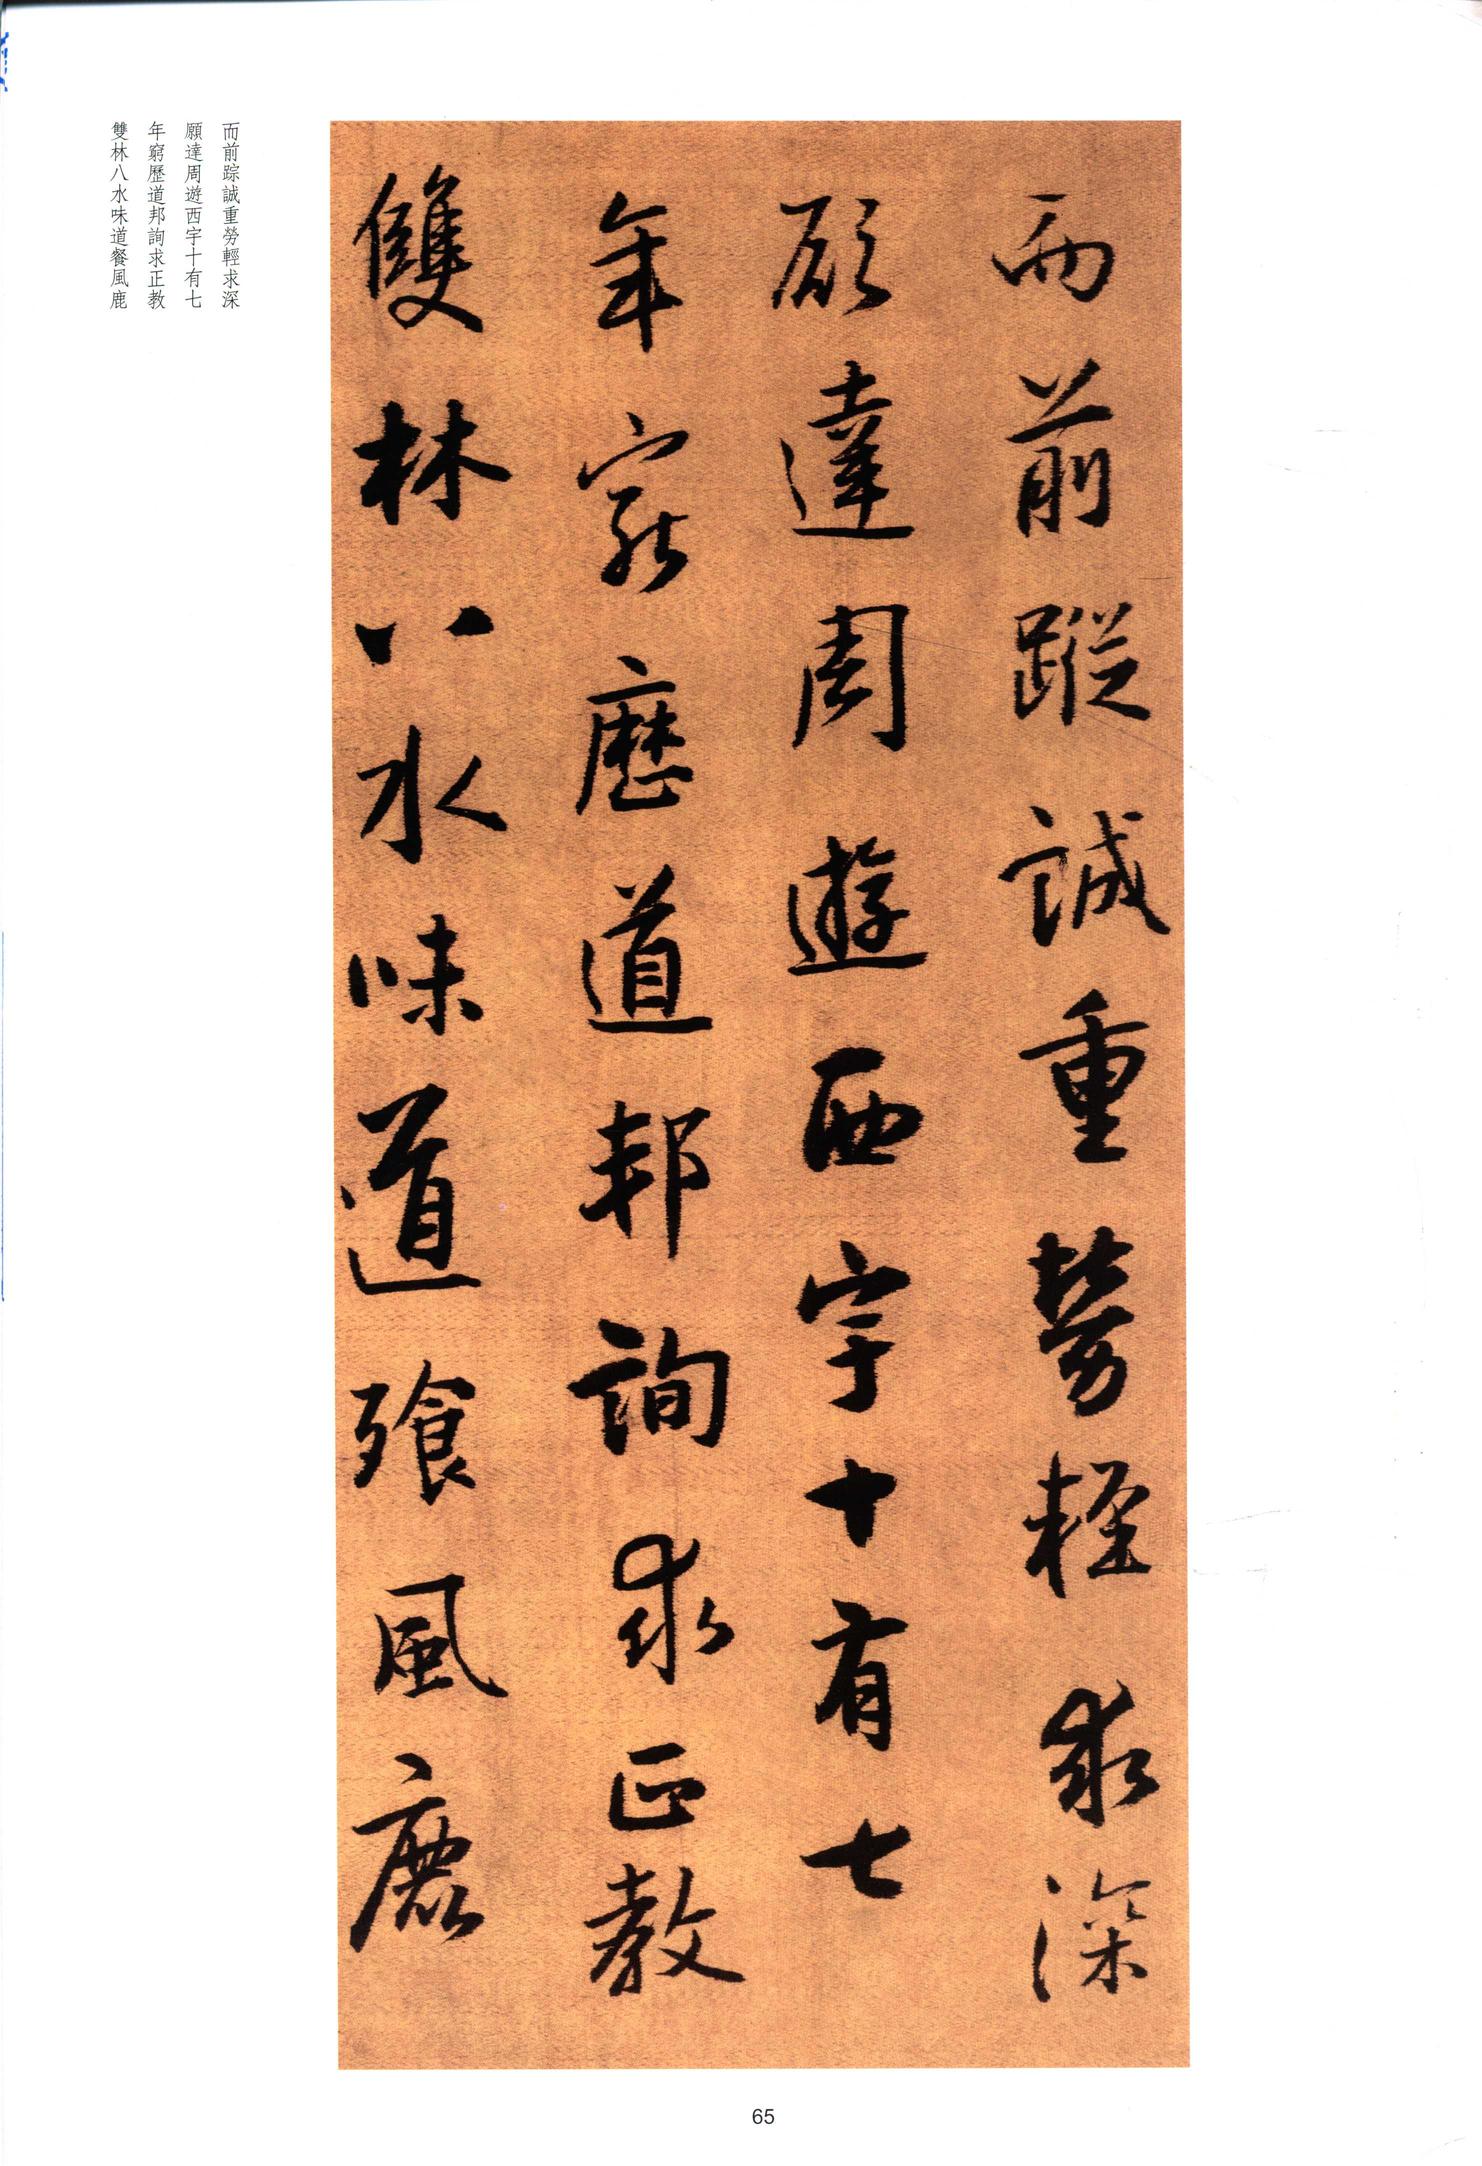 而前蹤誠重勞輕求深
願達周遊西宇十有七
年窮歷道邦詢求正教
雙林八水味道飡風鹿
而前踪誠重勞輕求深
願達周遊西宇十有七
年窮歷道邦詢求正教
雙林八水味道餐風鹿
65